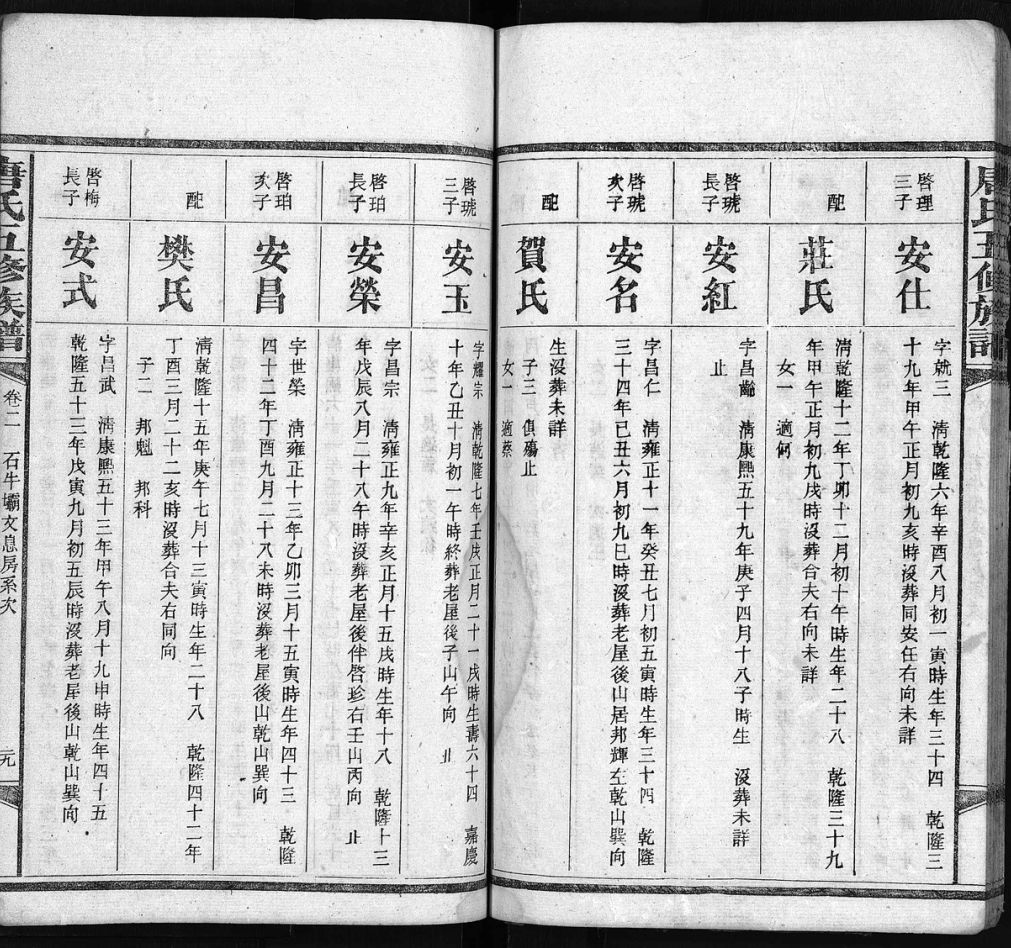 唐氏五修族譜
啓理
三子
安仕
字兢三　清乾隆六年辛酉八月初一寅時生年三十四　乾隆三
十九年甲午正月初九亥時沒葬同安任右向未詳
配
莊氏
清乾隆十二年丁卯十二月初十午時生年二十八　乾隆三十九
年甲午正月初九戌時沒葬合夫右向未詳
女一　適何
啓琥
長子
安紅
字昌齡　清康熙五十九年庚子四月十八子時生　沒葬未詳
止
啓琥
次子
安名
字昌仁　清雍正十一年癸丑七月初五寅時生年三十四　乾隆
三十四年己丑六月初九巳時沒葬老屋後山居邦輝左乾山巽向
配
賀氏
生沒葬未詳
子三　俱殤止
女一　適蔡
啓琥
三子
安玉
字耀宗　清乾隆七年壬戌正月二十一戌時生壽六十四　嘉慶
十年乙丑十月初一午時終葬老屋後子山午向　止
啓珀
長子
安榮
字昌宗　清雍正九年辛亥正月十五戌時生年十八　乾隆十三
年戊辰八月二十八午時沒葬老屋後伴啓珍右壬山丙向　止
啓珀
次子
安昌
字世榮　清雍正十三年乙卯三月十五寅時生年四十三　乾隆
四十二年丁酉九月二十八未時沒葬老屋後山乾山巽向
配
樊氏
清乾隆十五年庚午七月十三寅時生年二十八　乾隆四十二年
丁酉三月二十二亥時沒葬合夫右同向
子二　邦魁　邦科
啓梅
長子
安式
字昌武　清康熙五十三年甲午八月十九申時生年四十五
乾隆五十三年戊寅九月初五辰時沒葬老屋後山乾山巽向
唐氏五修族譜
卷二　石牛壩文息房系次
元